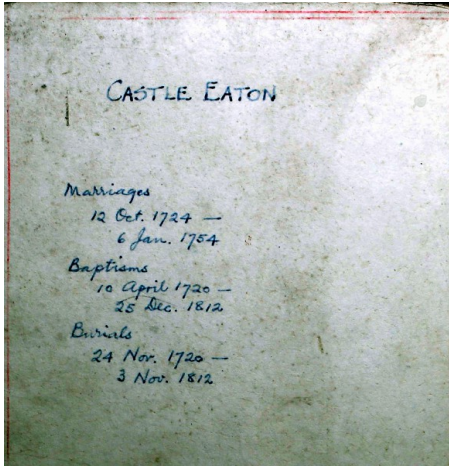 CASTLE EATON
Marriages
12 Oct. 1724 —
6 Jan. 1754
Baptisms
10 April 1720 —
25 Dec. 1812
Burials
24 Nov. 1720 —
3 Nov. 1812